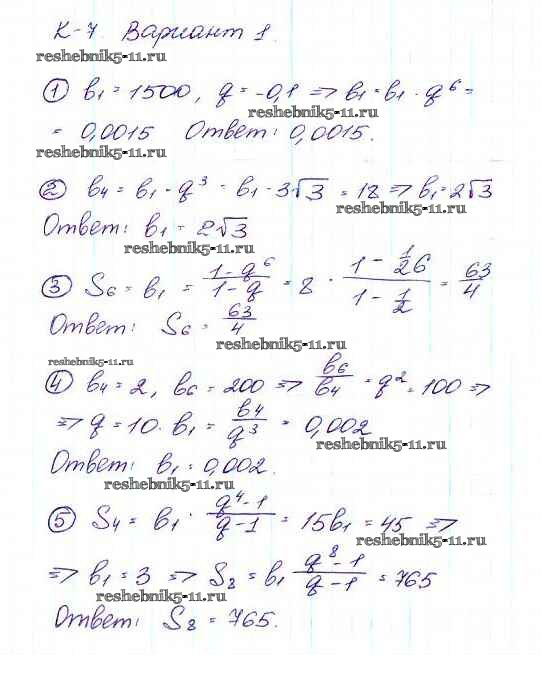 К-7. Вариант 1.
reshebnik5-11.ru
① b₁ = 1500, q = -0,1 => b₁ = b₁ · q⁶ =
reshebnik5-11.ru
= 0,0015 Ответ: 0,0015.
reshebnik5-11.ru
② b₄ = b₁ · q³ = b₁ · 3√3 = 18 => b₁ = 2√3
reshebnik5-11.ru
Ответ: b₁ = 2√3
reshebnik5-11.ru
③ S₆ = b₁ = (1-q⁶)/(1-q) = 8 · (1 - 1/26)/(1 - 1/2) = 63/4
Ответ: S₆ = 63/4
reshebnik5-11.ru
reshebnik5-11.ru
④ b₄ = 2, b₆ = 200 => b₆/b₄ = q² = 100 =>
=> q = 10. b₁ = b₄/q³ = 0,002
reshebnik5-11.ru
Ответ: b₁ = 0,002.
reshebnik5-11.ru
⑤ S₄ = b₁ · (q⁴-1)/(q-1) = 15b₁ = 45 =>
reshebnik5-11.ru
=> b₁ = 3 => S₈ = b₁ (q⁸-1)/(q-1) = 765
reshebnik5-11.ru
Ответ: S₈ = 765.